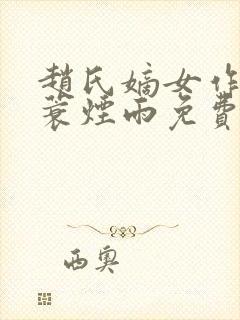 趙氏嫡女作
蓑煙雨免費
西奧